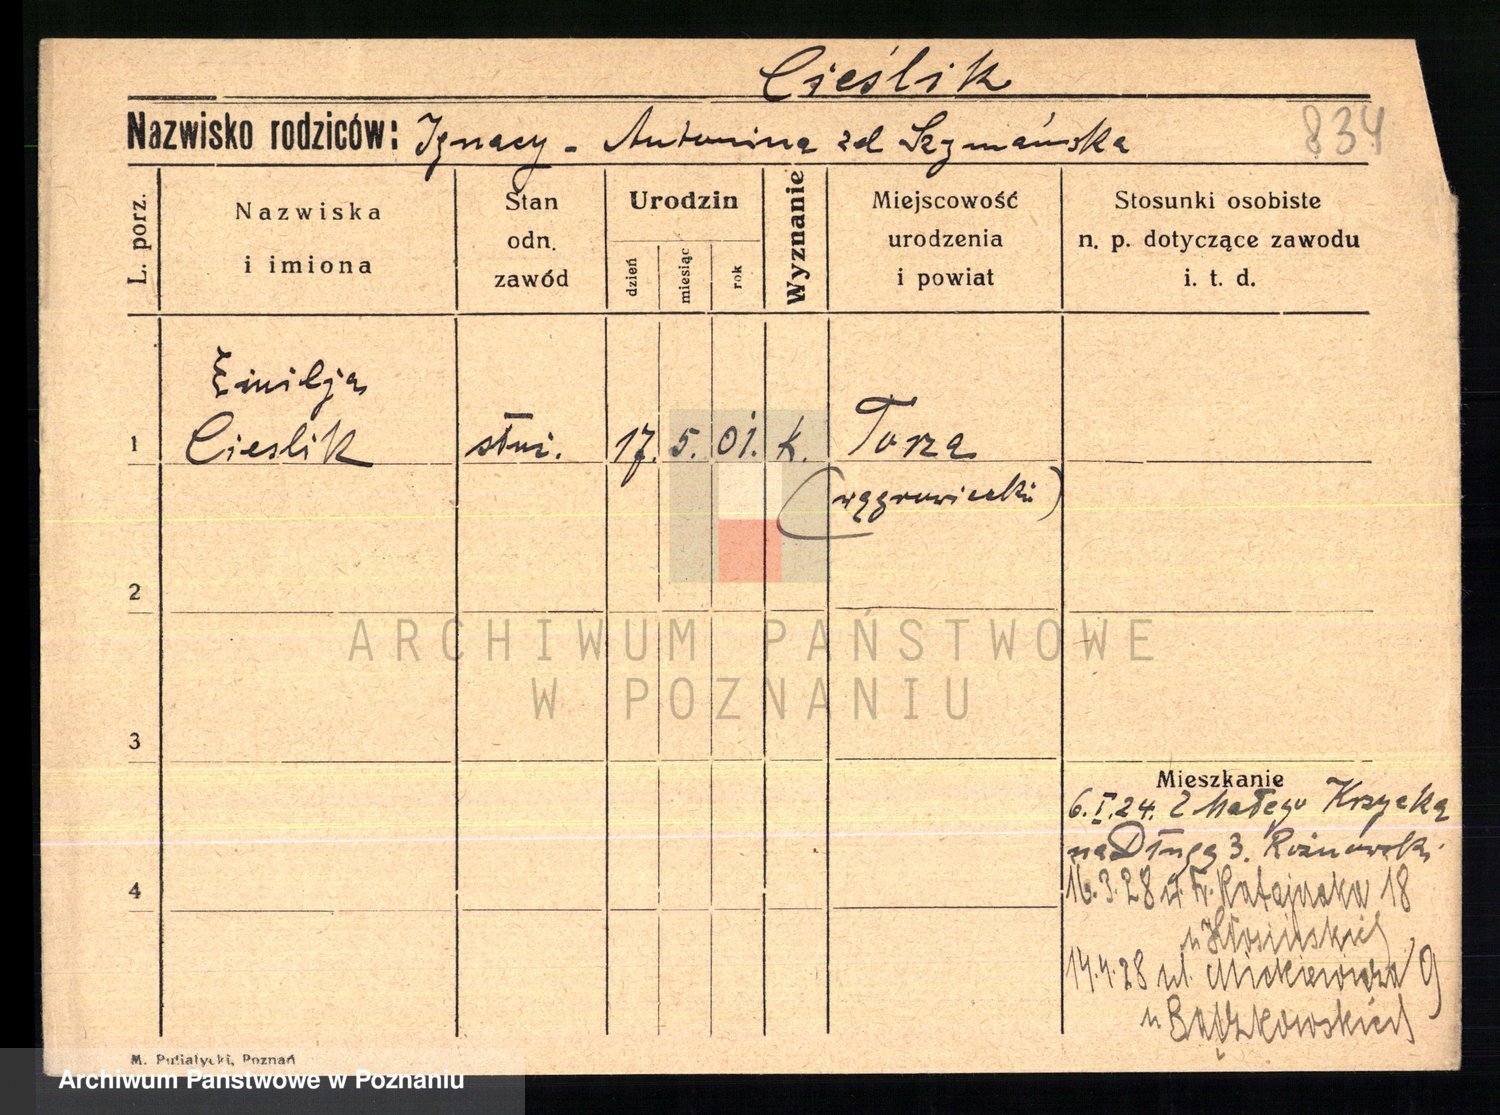 Cieślik
Nazwisko rodziców: Ignacy - Antonina zd Szymańska
834
L. porz.
Nazwiska
i imiona
Stan
odn.
zawód
Urodzin
dzień
miesiąc
rok
Wyznanie
Miejscowość
urodzenia
i powiat
Stosunki osobiste
n. p. dotyczące zawodu
i. t. d.
Emilja
1 Cieslik służ. 17. 5. 01. k. Torza
(wągrowiecki)
2
ARCHIWUM PAŃSTWOWE
W POZNANIU
3
Mieszkanie
6.I.24. Z Małego Krzycka
na Długą 3. Rożnowski
16.3.28 Fr. Ratajczaka 18
4
u Kłosińskich
14.4.28 ul. Mickiewicza 9
u
M. Putiatycki, Poznań
Archiwum Państwowe w Poznaniu